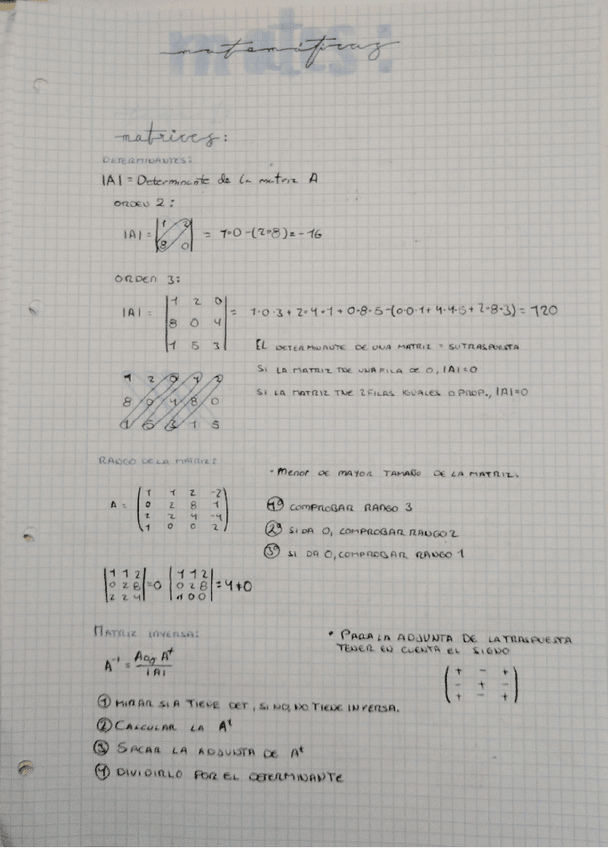 matemáticas
matrices:
DETERMINANTES:
|A| = Determinante de la matriz A
ORDEN 2:
|A| = |1 2| = 1·0-(2·8)=-16
|8 0|
ORDEN 3:
|A| = |1 2 0| = 1·0·3 + 2·4·1 + 0·8·5-(0·0·1+ 4·4·5 + 2·8·3) = 120
|8 0 4|
|1 5 3|
EL DETERMINANTE DE UNA MATRIZ = SU TRASPUESTA
SI LA MATRIZ TNE UNA FILA DE 0, |A|=0
SI LA MATRIZ TNE 2 FILAS IGUALES O PROP., |A|=0
1 2 0 1 2
8 0 4 8 0
1 5 3 1 5
RANGO DE LA MATRIZ:
· Menor DE MAYOR TAMAÑO DE LA MATRIZ.
A = (1 1 2 -2)
(0 2 8 1)
(2 2 4 -4)
(1 0 0 2)
1º COMPROBAR RANGO 3
2º SI DA 0, COMPROBAR RANGO 2
3º SI DA 0, COMPROBAR RANGO 1
|1 1 2| =0 |1 1 2| = 4≠0
|0 2 8| |0 2 8|
|2 2 4| |1 0 0|
MATRIZ INVERSA:
A⁻¹ = Adj Aᵗ / |A|
• PARA LA ADJUNTA DE LA TRASPUESTA
TENER EN CUENTA EL SIGNO
(+ - +)
(- + -)
(+ - +)
① MIRAR SI A TIENE DET, SI NO, NO TIENE INVERSA.
② CALCULAR LA Aᵗ
③ SACAR LA ADJUNTA DE Aᵗ
④ DIVIDIRLO POR EL DETERMINANTE